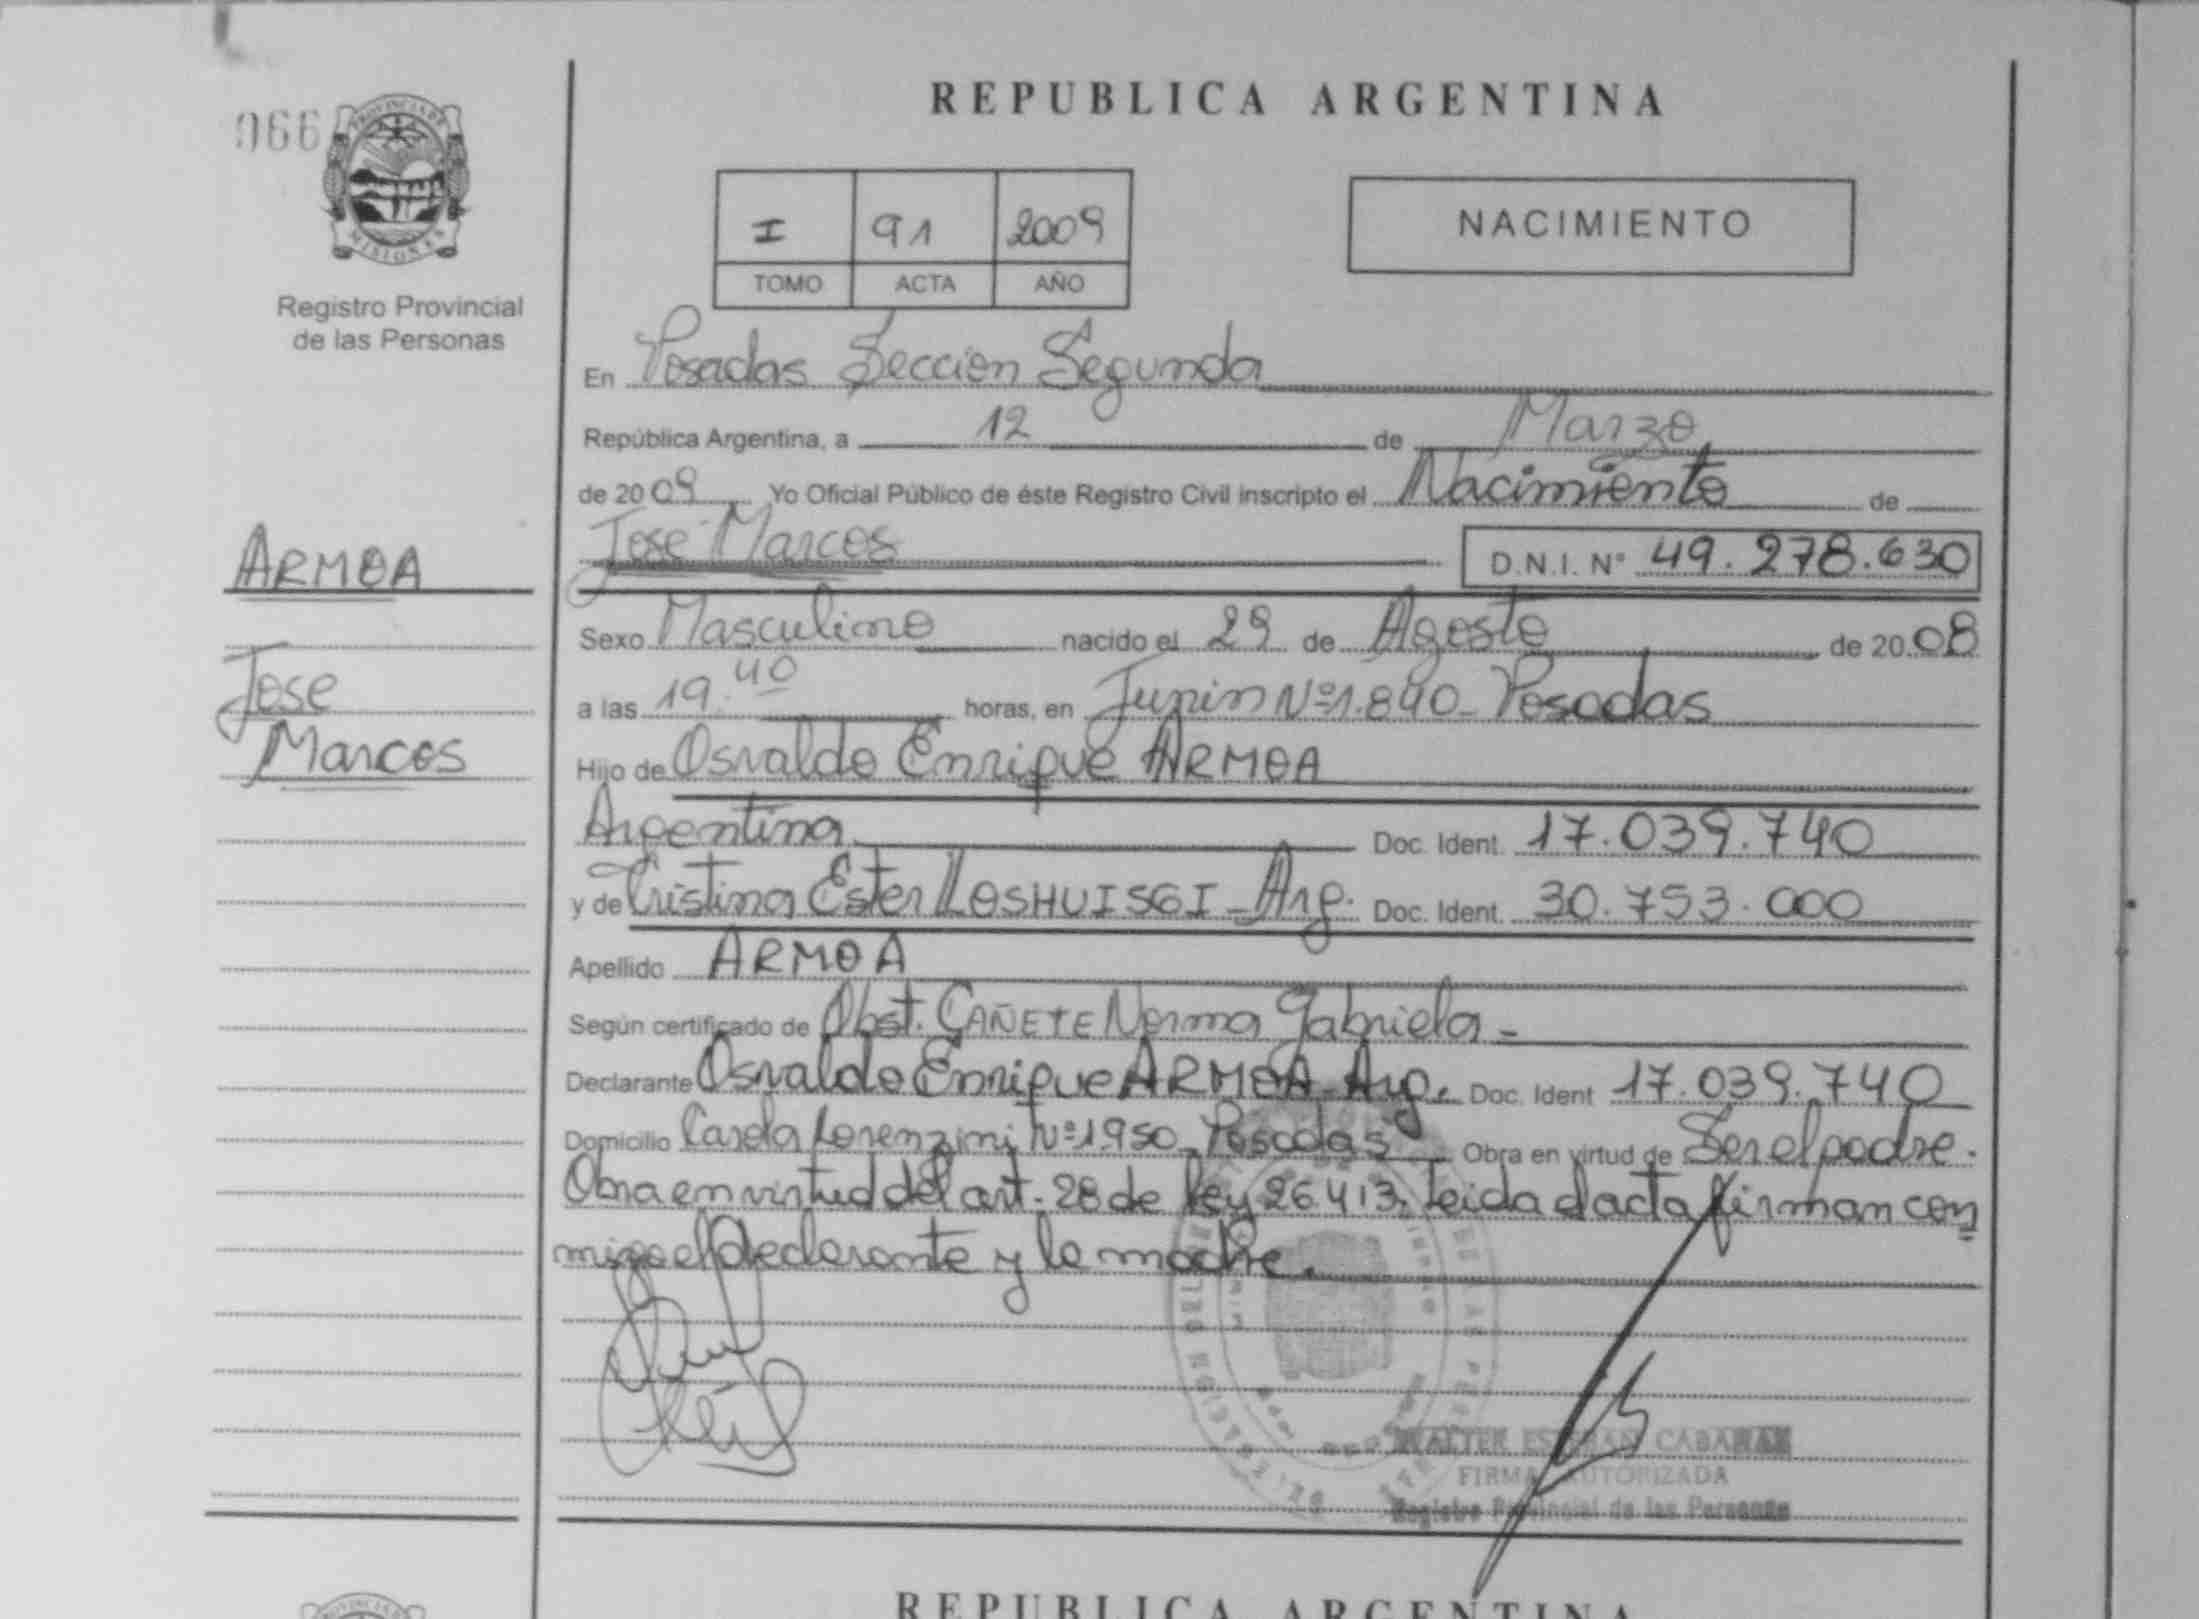 066
PROVINCIA DE
MISIONES
Registro Provincial
de las Personas
REPUBLICA ARGENTINA
I 91 2009
TOMO ACTA AÑO
NACIMIENTO
En Posadas Seccion Segunda
República Argentina, a 12 de Marzo
de 2009 Yo Oficial Público de éste Registro Civil inscripto el Nacimiento de
Jose Marcos D.N.I. N° 49.278.630
ARMOA
Jose
Marcos
Sexo Masculino nacido el 29 de Agosto de 2008
a las 19.40 horas, en Junin Nº1.890_ Posadas
Hijo de Osvaldo Enrique ARMOA
Argentina Doc. Ident. 17.039.740
y de Cristina Ester LOSHUISGI_Arg. Doc. Ident. 30.753.000
Apellido ARMOA
Según certificado de Obst. CAÑETE Norma Gabriela -
Declarante Osvaldo Enrique ARMOA_Arg. Doc. Ident 17.039.740
Domicilio Carola Lorenzini Nº1950_Posadas Obra en virtud de Ser el padre.
Obra en virtud del art. 28 de ley 26.413, leida el acta firman con
migo el declarante y la madre.
WALTER ESTEBAN
FIRMA AUTORIZADA
Registro Provincial de las Personas
REPUBLICA ARGENTINA